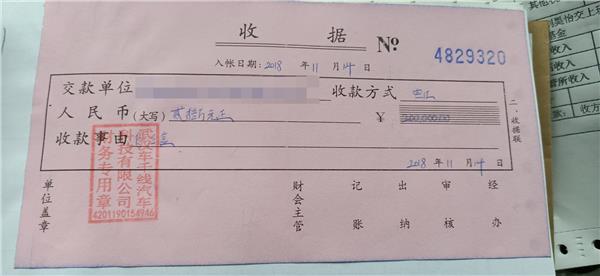 收 据 № 4829320
入帐日期：2018 年 11 月 14 日
交款单位 收款方式
人民币（大写） 贰拾万元正 ￥ 200,000.00
收款事由
2018 年 11 月 14 日
二、收据联
武汉车千线汽车
科技有限公司
财务专用章
4201190154946
单位盖章 财会主管 记账 出纳 审核 经办
基金
收入
所收入